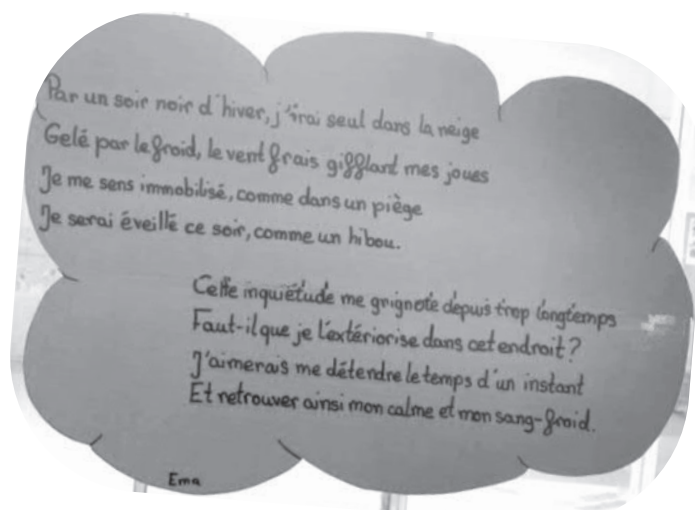 Par un soir noir d'hiver, j'irai seul dans la neige
Gelé par le froid, le vent frais gifflant mes joues
Je me sens immobilisé, comme dans un piège
Je serai éveillé ce soir, comme un hibou.
Cette inquiétude me grignote depuis trop longtemps
Faut-il que je l'extériorise dans cet endroit ?
J'aimerais me détendre le temps d'un instant
Et retrouver ainsi mon calme et mon sang-froid.
Ema